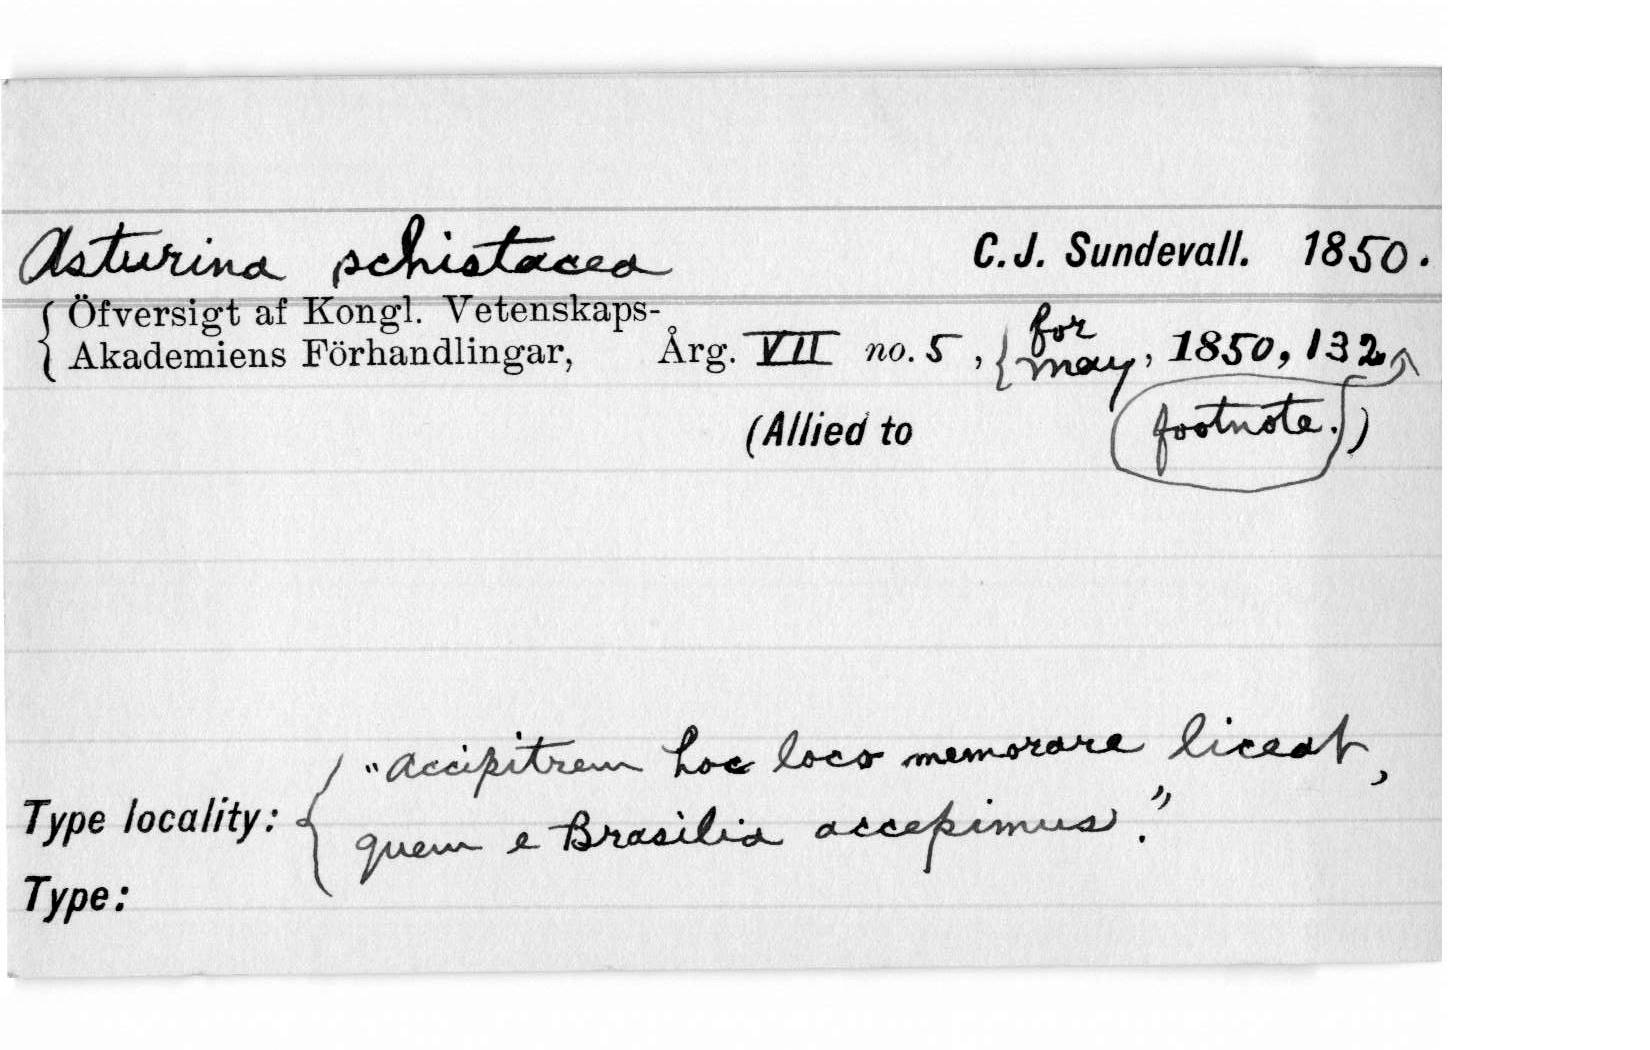 Asturina schistacea C.J. Sundevall. 1850.
Öfversigt af Kongl. Vetenskaps-
Akademiens Förhandlingar, Årg. VII no. 5, for May, 1850, 132,
(Allied to footnote.)
"Accipitrem hoc loco memorare liceat,
Type locality: quem e Brasilia accepimus."
Type: